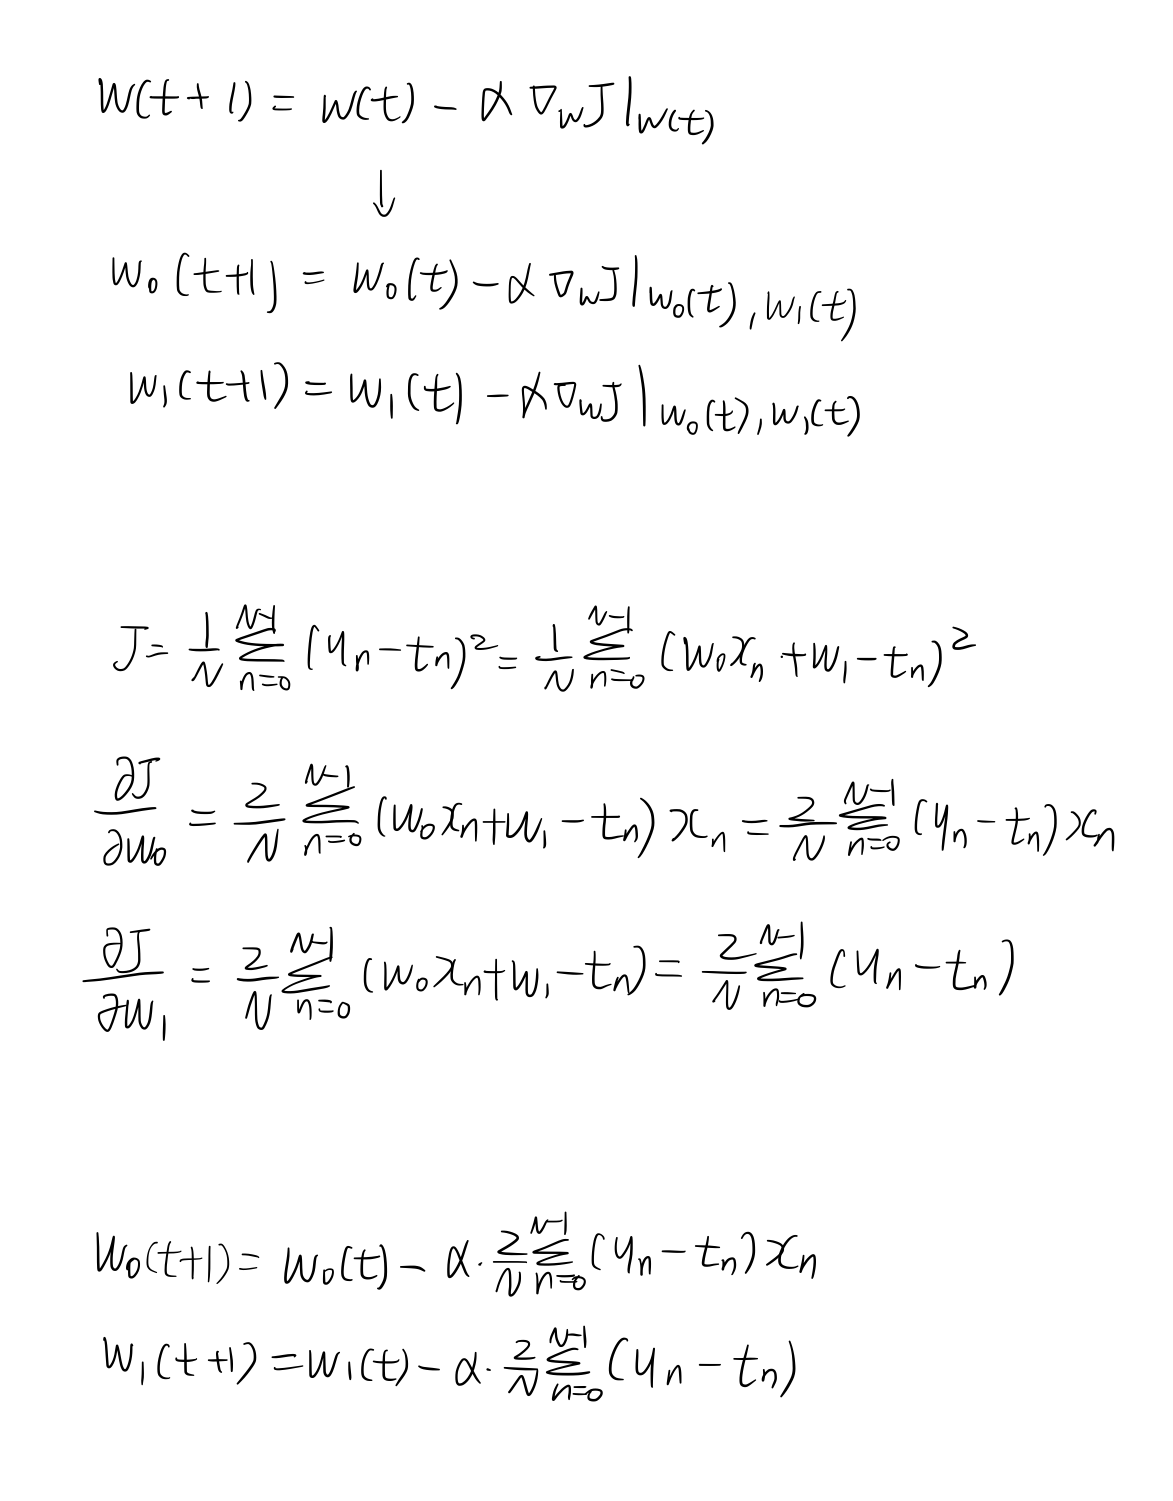 W(t+1) = w(t) - α ∇_W J |_W(t)
↓
w₀(t+1) = w₀(t) - α ∇_W J |_w₀(t), w₁(t)
w₁(t+1) = w₁(t) - α ∇_W J |_w₀(t), w₁(t)
J = 1/N Σ_{n=0}^{N-1} (y_n - t_n)² = 1/N Σ_{n=0}^{N-1} (w₀x_n + w₁ - t_n)²
∂J/∂w₀ = 2/N Σ_{n=0}^{N-1} (w₀x_n + w₁ - t_n) x_n = 2/N Σ_{n=0}^{N-1} (y_n - t_n) x_n
∂J/∂w₁ = 2/N Σ_{n=0}^{N-1} (w₀x_n + w₁ - t_n) = 2/N Σ_{n=0}^{N-1} (y_n - t_n)
w₀(t+1) = w₀(t) - α · 2/N Σ_{n=0}^{N-1} (y_n - t_n) x_n
w₁(t+1) = w₁(t) - α · 2/N Σ_{n=0}^{N-1} (y_n - t_n)